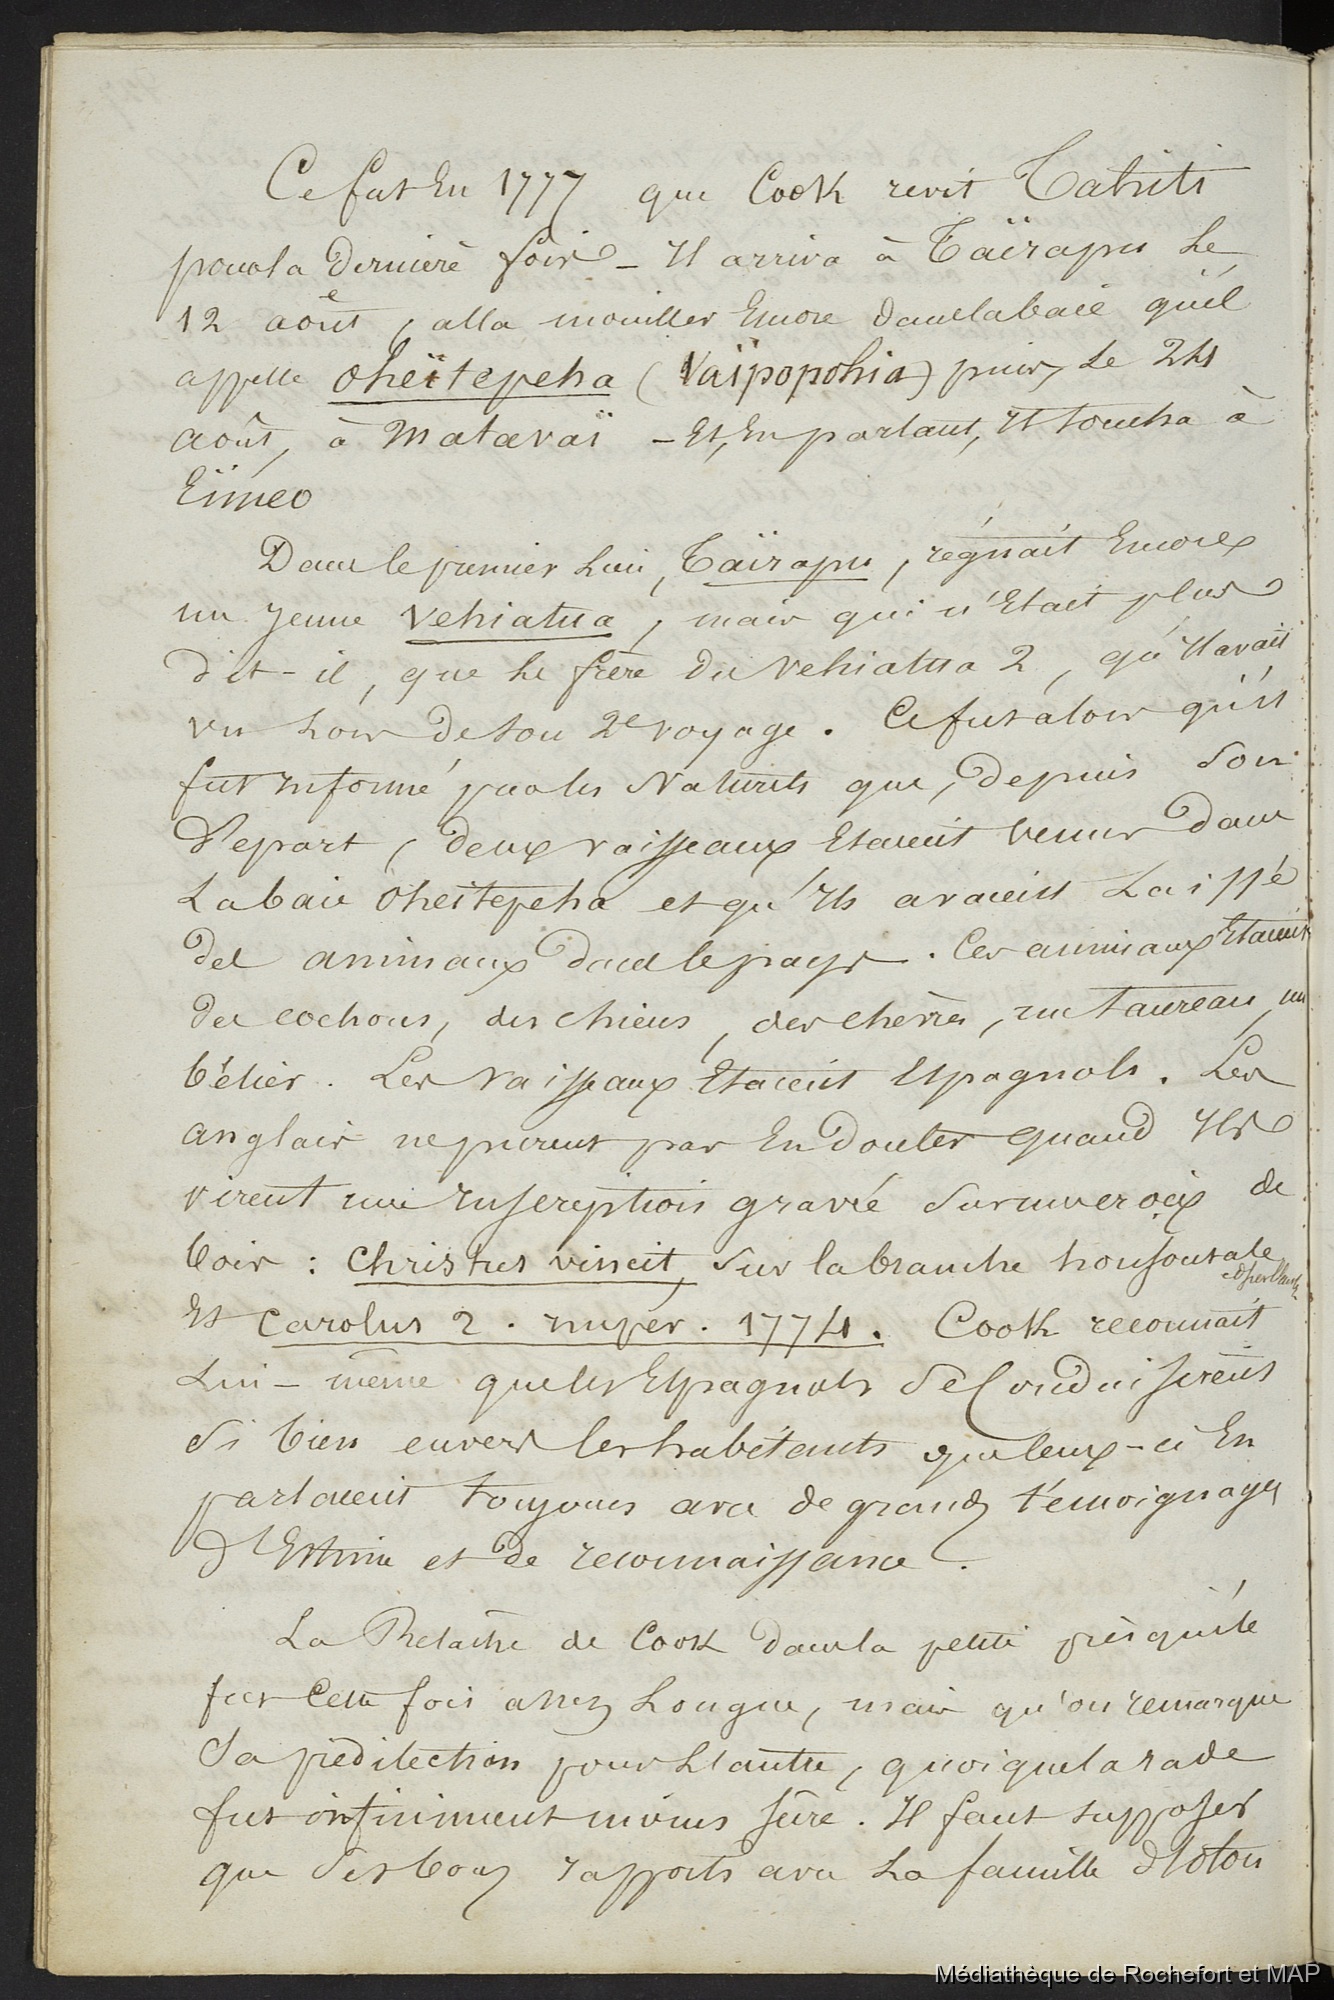 Ce fut En 1777 que Cook revit Tahiti
pour la Dernière fois – Il arriva à Taïrapu Le
12 août, alla mouiller Encore dans la baie qu'il
appelle Oheïtepeha (Vaïpopohia) puis, Le 24
août, à Matavaï – Et, En partant, Il toucha à
Eïmeo
Dans le premier Lieu, Taïrapu, régnait Encore
un Jeune Vehiatua, mais qui n'Etait plus
dit-il, que Le frère du Vehiatua 2, qu'Il avait
vu Lors De Son 2e voyage. Ce fut alors qu'il
fut Informé par les Naturels que, Depuis Son
Départ, Deux vaisseaux Etaient Venus Dans
La baie Oheitepeha et qu'Ils avaient Laissé
Des animaux Dans le pays. Ces animaux Etaient
Des cochons, des chiens, des chèvres, un taureau, un
bélier. Les Vaisseaux Etaient Espagnols. Les
anglais ne purent pas En Douter quand Ils
virent une Inscription gravée Sur une croix de
bois : Christus vincit, Sur la branche horisontale
Et Carolus 2. Imper. 1774. Cook reconnait
Lui-même que les Espagnols Se Conduisirent
Si bien envers les habitants que Ceux-ci En
parlaient toujours avec de grands témoignages
d'Estime et de reconnaissance.
La Relâche de Cook Dans la petite presqu'ile
fut Cette fois assez Longue, mais qu'on remarque
Sa prédilection pour L'autre, quoique la rade
fut infiniment moins sûre. Il faut supposer
que Ses bons rapports avec La famille d'Otou
Médiathèque de Rochefort et MAP